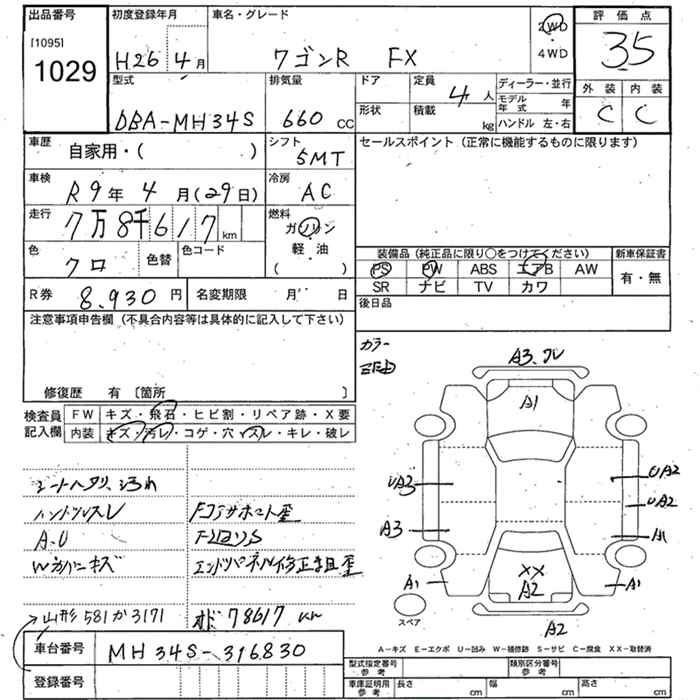 出品番号
[1095]
1029
初度登録年月
H26 4月
車名・グレード
ワゴンR FX
2WD
・
4WD
評価点
35
外装 内装
C C
型式
DBA-MH34S
排気量
660 cc
ドア
形状
定員
4人
積載
kg
ディーラー・並行
モデル年式 年
ハンドル 左・右
車歴
自家用・( )
シフト
5MT
セールスポイント (正常に機能するものに限ります)
車検
R9年4月(29日)
冷房
AC
走行
7万8千617km
燃料
ガソリン
軽・油
( )
色
クロ
色替
色コード
装備品(純正品に限り○をつけてください)
新車保証書
PS PW ABS エアB AW
SR ナビ TV カワ
有・無
R券
8,930円
名変期限 月 日
後日品
注意事項申告欄 (不具合内容等は具体的に記入して下さい)
修復歴 有 〔箇所 〕
検査員記入欄
FW キズ・飛石・ヒビ割・リペア跡・X要
内装 キズ・汚レ・コゲ・穴・スレ・キレ・破レ
シートヘタリ、汚れ
ハンドルスレ
A.U
Wカバーキズ
山形 581 か 3171
Fコアサポート歪
エンドパネル修正歪
オド 78617 km
カラー
A3、ワレ
A1
UA3
A3
A1
UA2
UA2
A1
A1
XX
A2
A2
スペア
A-キズ E-エクボ U-凹み W-補修跡 S-サビ C-腐食 XX-取替済
車台番号
MH34S-316830
登録番号
型式指定番号 参考
類別区分番号 参考
車庫証明用 参考
長さ cm
幅 cm
高さ cm